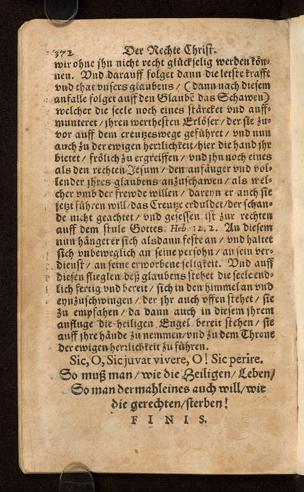 372 Der Rechte Christ.
wir ohne jhn nicht recht glückselig werden kön-
nen. Vnd darauff folget dann die letste krafft
vnd that vnsers glaubens / (dann nach diesem
anfalle folget auff den Glaubē das Schawen)
welcher die seele noch eines stärcket vnd auff-
munteret / jhren werthesten Erlöser / der sie zu-
vor auff dem creutzeswege geführet / vnd nun
auch zu der ewigen herrlichkeit / hier die hand jhr
bietet / frölich zu ergreiffen / vnd jhn noch eines
als den rechten Jesum / den anfänger vnd vol-
lender jhres glaubens anzuschawen / als wel-
cher vmb der frewde willen / daren er auch sie
jetzt führen will / das Creutze erduldet / der schan-
de nicht geachtet / vnd gesessen ist zur rechten
auff dem stule Gottes. Heb. 12. 2. An diesem
nun hänget er sich alsdann feste an / vnd haltet
sich vnbeweglich an seine persohn / an sein ver-
dienst / an seine erworbene seligkeit. Vnd auff
diesen fluegeln deß glaubens stehet die seele end-
lich fertig vnd bereit / sich in den himmel an vnd
eynzuschwingen / der jhr auch offen stehet / sie
zu empfahen / da dann auch in diesem jhrem
auffluge die heiligen Engel bereit stehen / sie
auff jhre hände zu nemmen / vnd zu dem Throne
der ewigen herrlichkeit zu führen.
Sic, O, Sic juvat vivere, O! Sic perire.
So muß man / wie die Heiligen / Leben /
So man der mahleines auch will / wie
die gerechten / sterben!
FINIS.